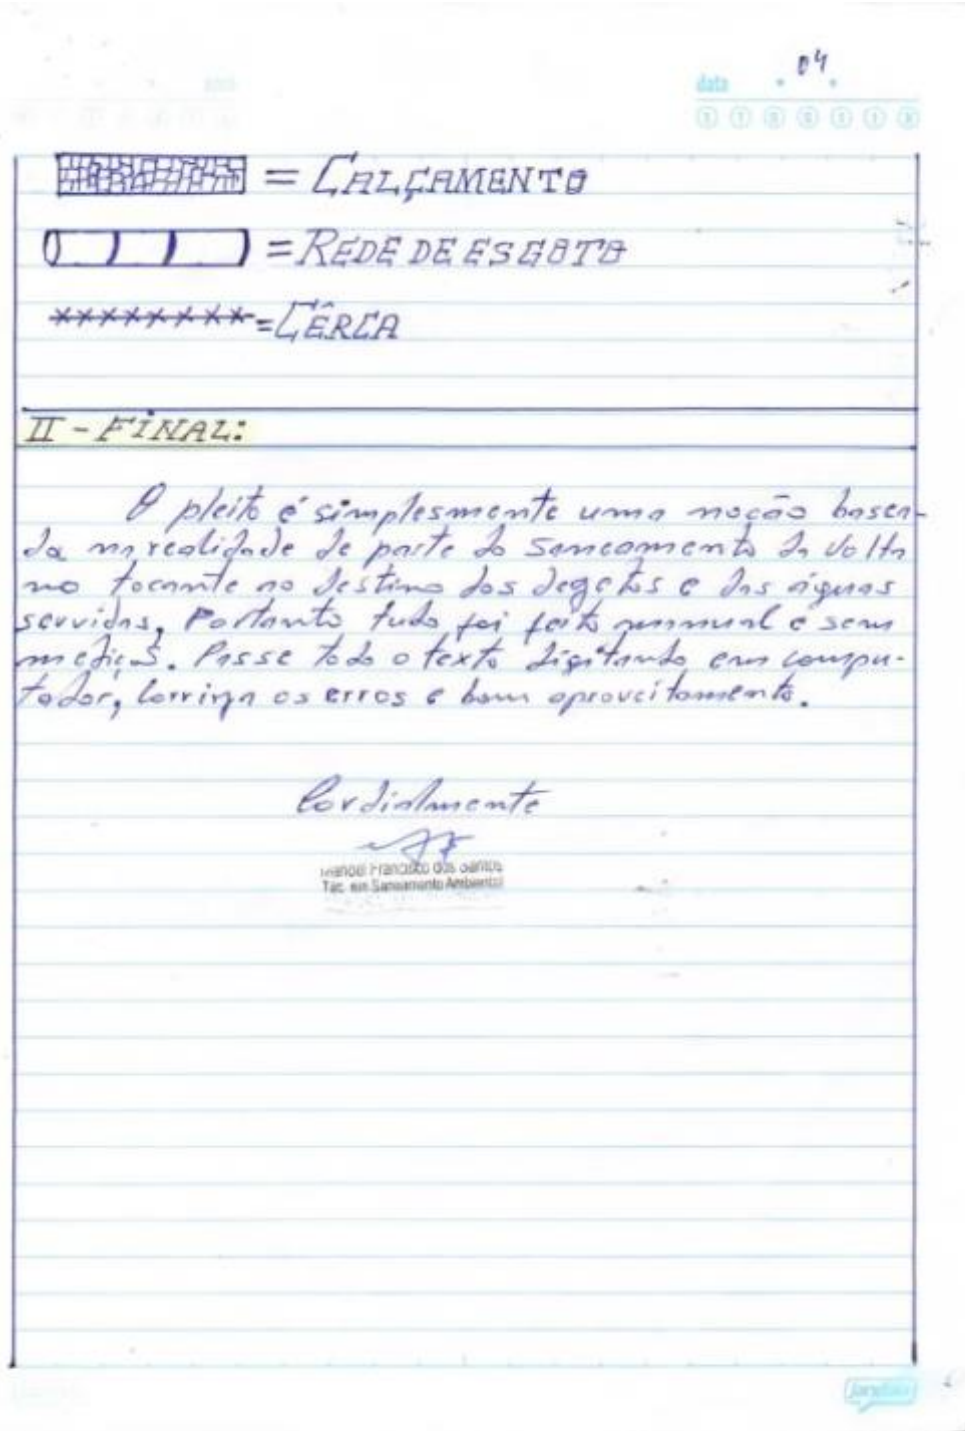 04
data
= CALÇAMENTO
= REDE DE ESGOTO
= CÊRCA
II - FINAL:
O pleito é simplesmente uma noção basea-
da na realidade de parte do saneamento da Volta
no tocante ao destino dos degetos e das águas
servidas, Portanto tudo foi feito manual e sem
mediçãõ. Passe todo o texto digitando em compu-
tador, Corrija os erros e bom aproveitamento.
Cordialmente
Manoel Francisco dos Santos
Téc. em Saneamento Ambiental
jandaia